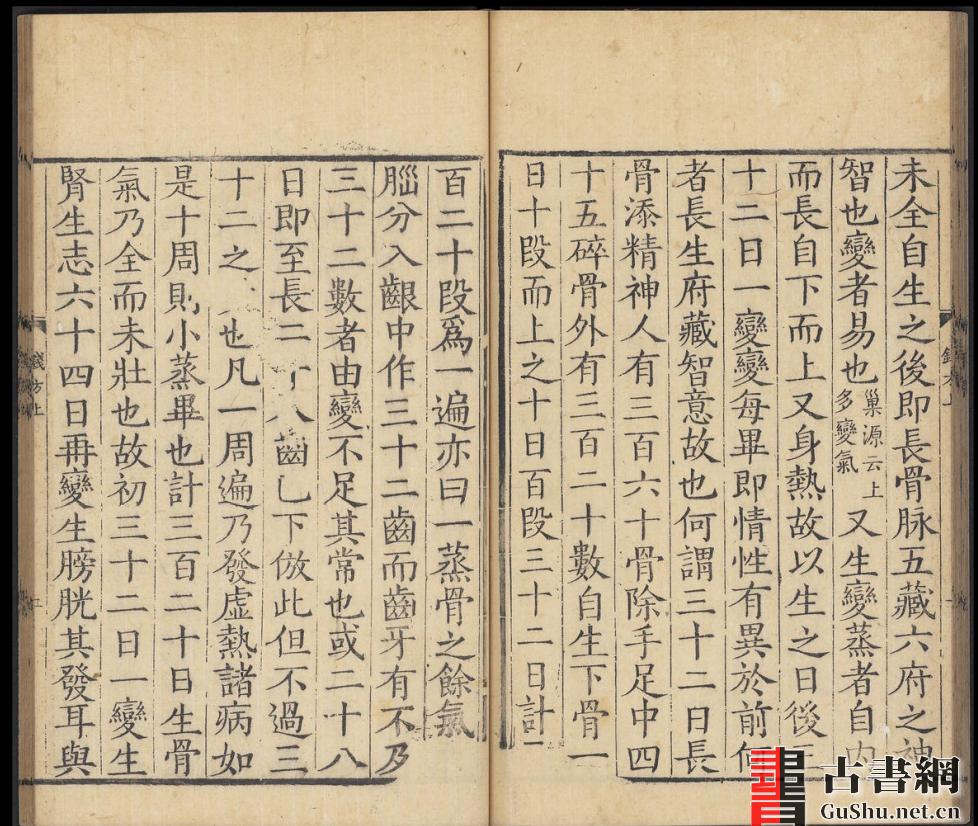 未全自生之後即長骨脉五藏六府之神
智也變者易也
巢源云上
多變氣
又生變蒸者自内
而長自下而上又身熱故以生之日後三
十二日一變變每畢即情性有異於前何
者長生府藏智意故也何謂三十二日長
骨添精神人有三百六十骨除手足中四
十五碎骨外有三百二十數自生下骨一
日十段而上之十日百段三十二日計
百二十段爲一遍亦曰一蒸骨之餘氣
腦分入齦中作三十二齒而齒牙有不及
三十二數者由變不足其常也或二十八
日即至長二十八齒已下倣此但不過三
十二之 也凡一周遍乃發虛熱諸病如
是十周則小蒸畢也計三百二十日生骨
氣乃全而未壯也故初三十二日一變生
腎生志六十四日再變生膀胱其發耳與
錢方上
古書網
GuShu.net.cn